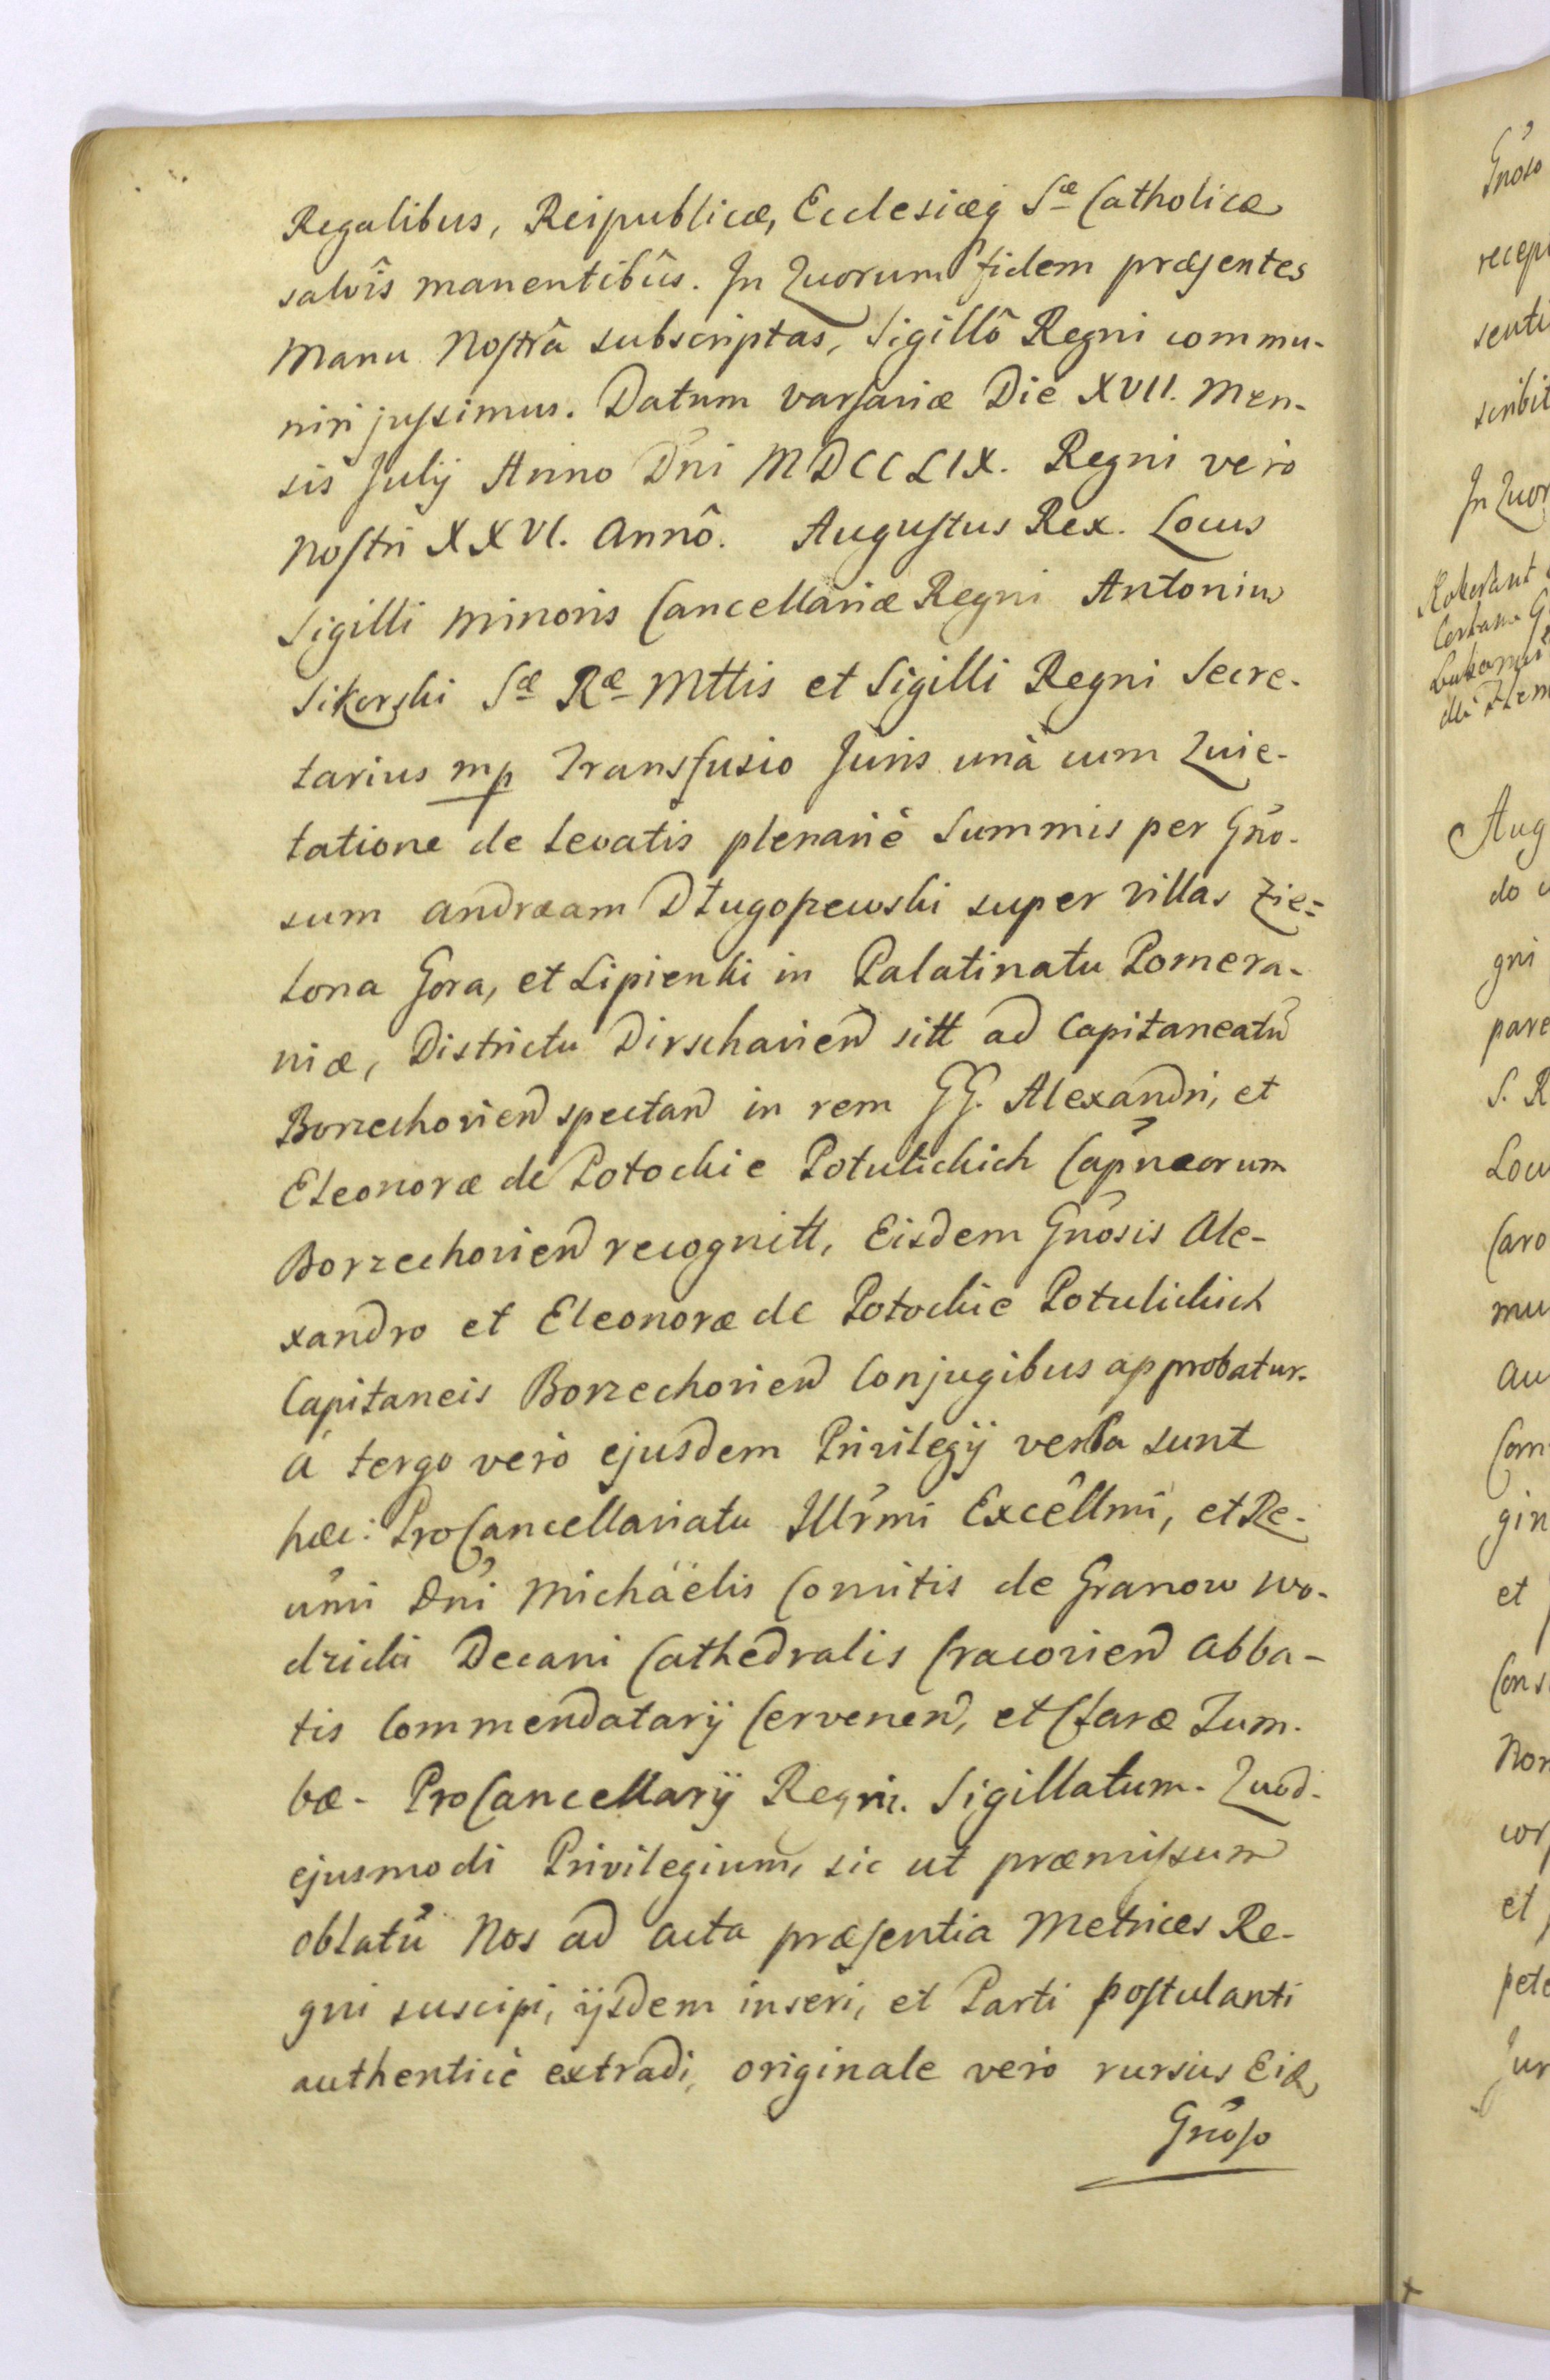 Regalibus, Reipublicæ, Ecclesiæq Sæ Catholicæ
salvîs manentibûs. In Quorum fidem præsentes
Manu Nostrâ subscriptas, Sigillô Regni commu-
niri jussimus. Datum Varsaviæ Die XVII. Men-
sis Julij Anno Dni MDCCLIX. Regni verò
Nostri XXVI. Annô. Augustus Rex. Locus
Sigilli Minoris Cancellariæ Regni Antonius
Sikorski Sæ Ræ Mttis et Sigilli Regni Secre-
tarius mp Transfusio Juris unà cum Quie-
tatione de levatis plenariè Summis per Gno-
sum Andræam Długoszewski super Villas Zie-
lona Gora, et Lipienki in Palatinatu Pomera-
niæ, Districtu Dirschavien sitt ad Capitaneatũ
Borzechovien spectan in rem GG. Alexandri, et
Eleonoræ de Potockie Potulickich Capnæorum
Borzechovien recognitt, Eisdem Gnosis Ale-
xandro et Eleonoræ de Potockie Potulickich
Capitaneis Borzechovien Conjugibus approbatur.
à tergo verò ejusdem Privilegij verba sunt
hæc: ProCancellariatu Illrmi Excellmi, et Re-
vmi Dni Michäelis Comitis de Granow Wo-
dzicki Decani Cathedralis Cracovien Abba-
tis Commendatarij Cervenen, et Claræ Tum-
bæ- ProCancellarij Regni. Sigillatum. Quod-
ejusmodi Privilegium, sic ut præmissum
oblatũ Nos ad acta præsentia Metrices Re-
gni suscipi, ijsdem inseri, et Parti postulanti
authenticè extradi, originale verò rursùs Eid
Gnoso
Gnoso
recep
senti
scribit
In Quor
Aug
do
gni
pare
S. R
Locu
Caro
mu
au
Com
gin
et
Cons
Non
cor
et
pete
Jur